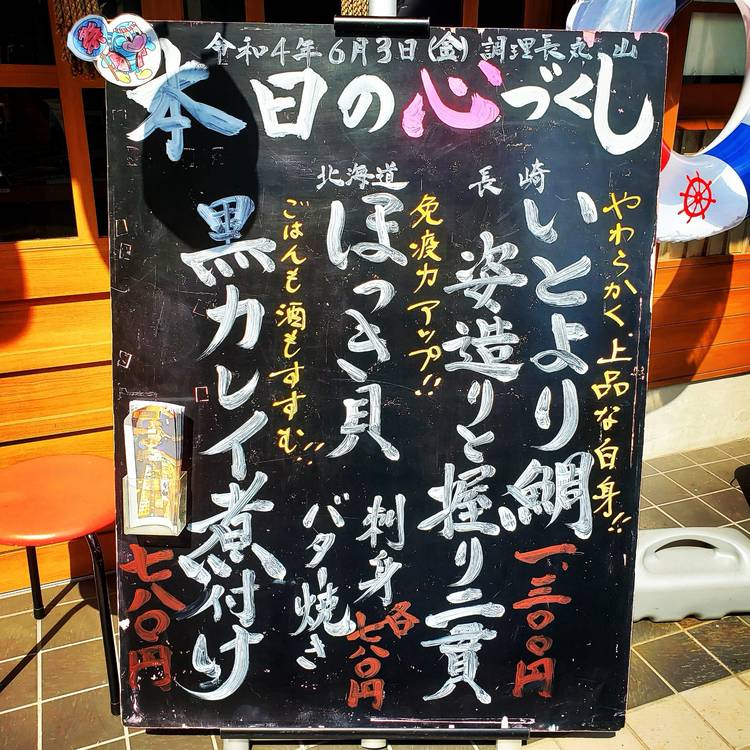 令和4年6月3日(金) 調理長丸山
本日の心づくし
やわらかく上品な白身!!
長崎
いとより鯛
姿造りと握り二貫
一、三〇〇円
免疫力アップ!!
北海道
ほっき貝
刺身
バター焼き
各七八〇円
ごはんも酒もすすむ!!
黒カレイ煮付け
七八〇円